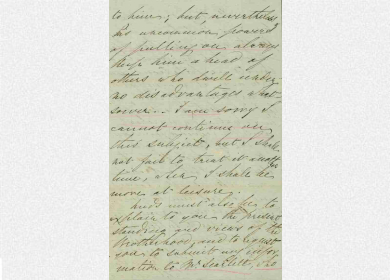 to him; but, nevertheless
his uncommon powers
of pulling on always
keep him ahead of
others who dwell under
no disadvantages what
soever. I am sorry I
cannot continue on
this subject, but I shall
not fail to treat it another
time, when I shall be
more at leisure.
must also be to
explain to you the present
standing and views of the
Brotherhood, and to request
you to submit any infor
mation to Mr